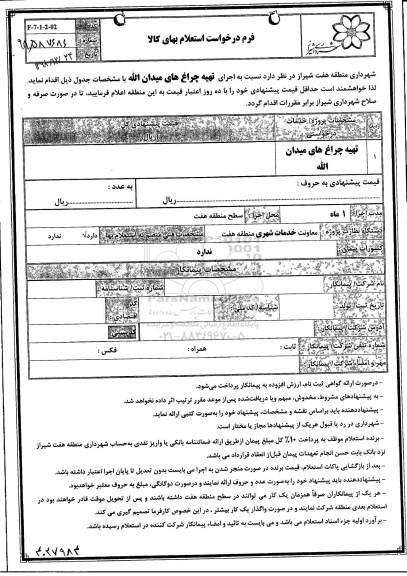 F-7-1-2-02
فرم درخواست استعلام بهای کالا
شهرداری منطقه هفت شیراز در نظر دارد نسبت به اجرای تهیه چراغ های میدان الله با مشخصات جدول ذیل اقدام نماید.
لذا خواهشمند است حداقل قیمت پیشنهادی خود را با ده روز اعتبار قیمت به این منطقه اعلام فرمایید، تا در صورت صرفه و
صلاح شهرداری شیراز برابر مقررات اقدام گردد.
مشخصات پروژه/ خدمات
درخواستی
ریال
۱
تهیه چراغ های میدان
الله
قیمت پیشنهادی به حروف : ریال
به عدد : ریال
مدت اجرا: ۱ ماه
محل اجرا: سطح منطقه هفت
دستگاه نظارت پروژه: معاونت خدمات شهری منطقه هفت
دارد/ ندارد
کسورات پیمان: ندارد
مشخصات پیمانکار
نام شرکت/ پیمانکار:
شماره ثبت/ شناسنامه:
تاریخ ثبت/ تولد:
شناسه/ کد ملی:
کد اقتصادی:
آدرس شرکت/ پیمانکار:
کدپستی:
۰۲۱-۸۸۳۴۹۶۷۰-۵
شماره تلفن شرکت/ پیمانکار:
ثابت :
همراه :
فکس :
مهر و امضاء شرکت/ پیمانکار:
- درصورت ارائه گواهی ثبت نام، ارزش افزوده به پیمانکار پرداخت می‌شود.
- به پیشنهادهای مشروط، مخدوش، مبهم ویا دریافت‌شده پس‌از موعد مقرر ترتیب اثر داده نخواهد شد.
- پیشنهاددهنده باید براساس نقشه و مشخصات، پیشنهاد خود را به‌صورت کتبی ارائه نماید.
- شهرداری در رد یا قبول هریک از پیشنهادها مجاز یا مختار است.
- برنده استعلام موظف به پرداخت ۱۰٪ کل مبلغ پیمان ازطریق ارائه ضمانتنامه بانکی یا واریز نقدی به‌حساب شهرداری منطقه هفت شیراز
نزد بانک بابت حسن انجام تعهدات پیمان قبل‌از انعقاد قرارداد می باشد.
- بعد از بازگشایی پاکات استعلام، قیمت برنده در صورت منجر شدن به اجرا می بایست بدون تعدیل تا پایان اجرا اعتبار داشته باشد.
- پیشنهاددهنده باید پیشنهاد خود را به‌صورت عدد و حروف ارائه نمایند و درصورت دوگانگی، مبلغ به حروف معتبر خواهدبود.
- هر یک از پیمانکاران صرفاً همزمان یک کار می توانند در سطح منطقه هفت داشته باشند و پس از تحویل موقت قادر خواهند بود در
استعلام بعدی منطقه شرکت نمایند و در صورت واگذار یک کار بیشتر ، در این خصوص کارفرما تصمیم گیری می کند.
- برآورد اولیه جزء اسناد استعلام می باشد و می بایست به تائید و امضاء پیمانکار شرکت کننده در استعلام رسیده باشد.